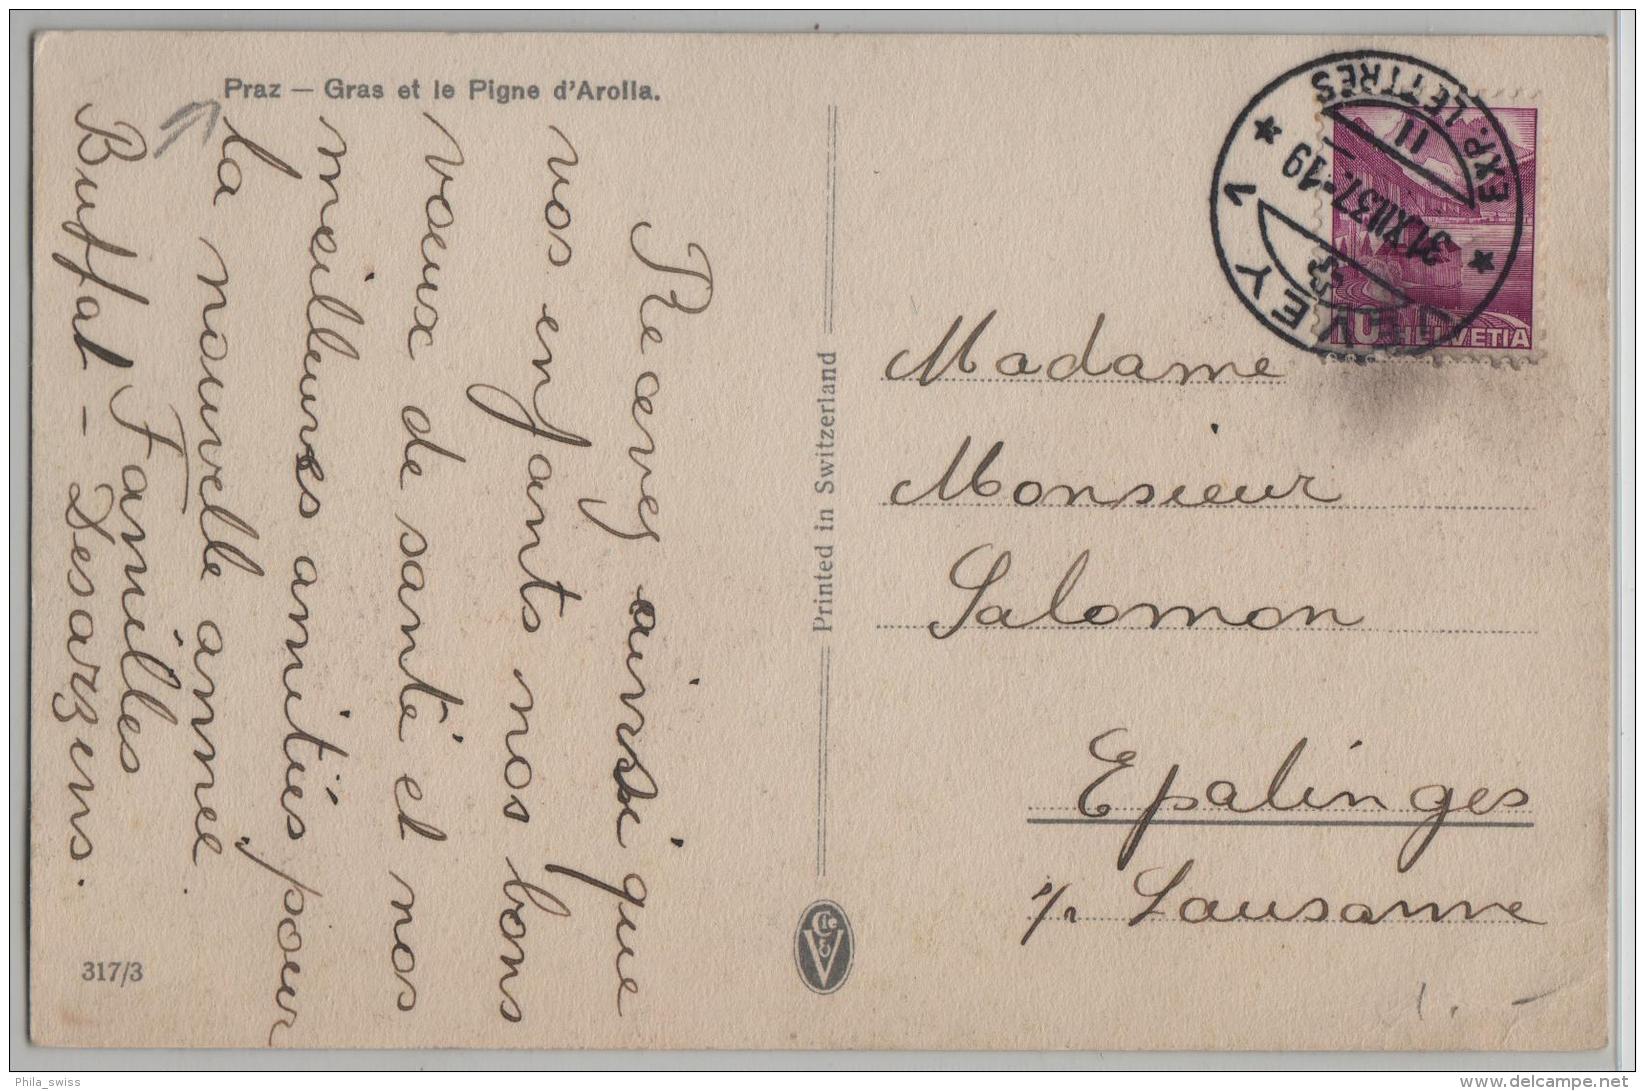 Praz — Gras et le Pigne d'Arolla.
Recevez ainsi que
vos enfants nos bons
vœux de santé et nos
meilleures amitiés pour
la nouvelle année
Familles
Buffat - Desarzens.
317/3
Printed in Switzerland
Cie
V
Madame
Monsieur
Salomon
Epalinges
s/ Lausanne
1.-
VEVEY 1
EXP. LETTRES
31.XII.37.-19
11
10 HELVETIA
Phila_swiss
delcampe.net